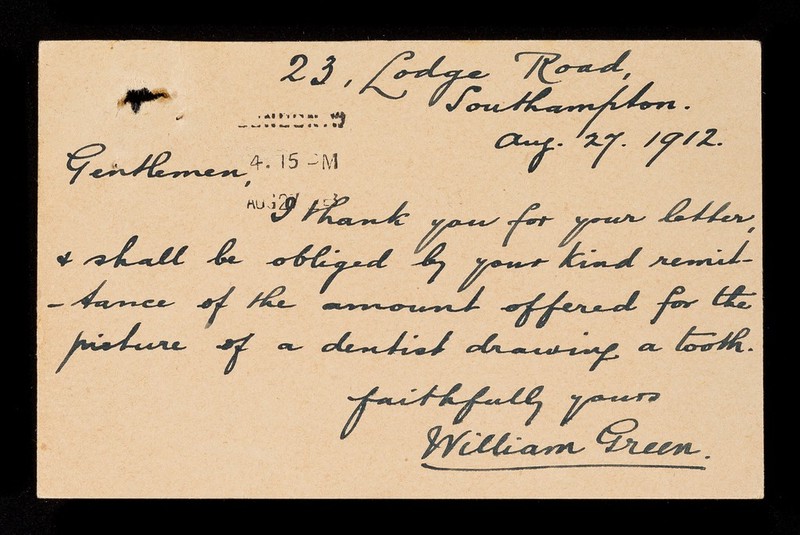 23, Lodge Road,
Southampton.
Aug. 27. 1912.
LONDON. W
4. 15 PM
AUG 27
Gentlemen,
I thank you for your letter,
& shall be obliged by your kind remit-
-tance of the amount offered for the
picture of a dentist drawing a tooth.
faithfully yours
William Green.